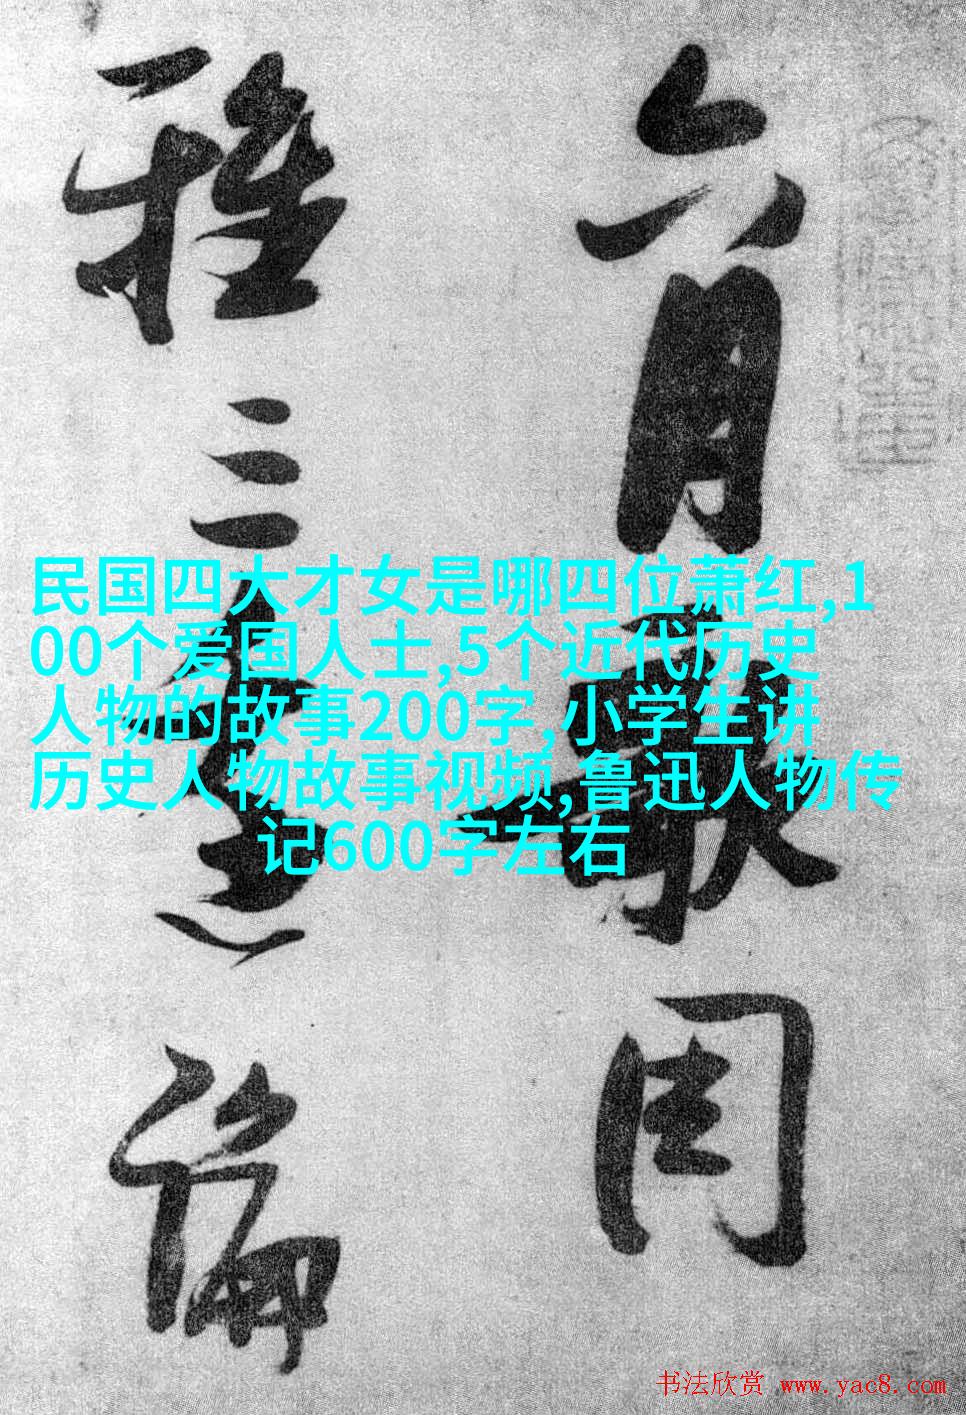 六月歌周
雅三
论
民国四大才女是哪四位萧红,1
00个爱国人士,5个近代历史
人物的故事200字,小学生讲
历史人物故事视频,鲁迅人物传
记600字左右
书法欣赏 www.yac8.com